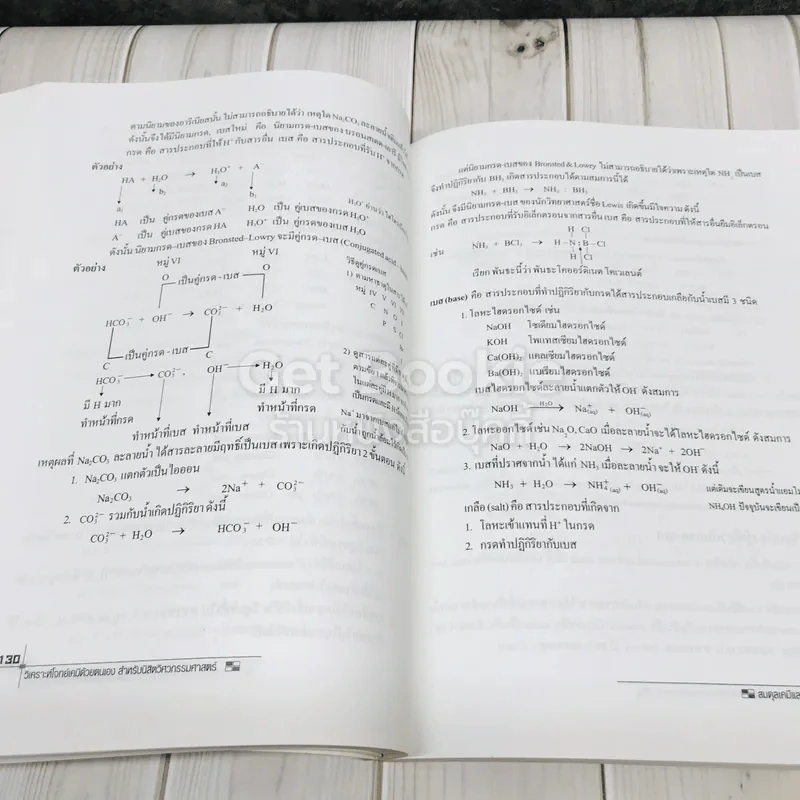 ตามนิยามของอาร์เรเนียสนั้น ไม่สามารถอธิบายได้ว่า เหตุใด Na₂CO₃ ละลายน้ำ
ดังนั้นจึงได้มีนิยามกรด, เบสใหม่ คือ นิยามกรด-เบสของ
กรด คือ สารประกอบที่ให้ H⁺ กับสารอื่น เบส คือ สารประกอบที่รับ H⁺
ตัวอย่าง
HA + H₂O → H₃O⁺ + A⁻
a₁ b₂ a₂ b₁
HA เป็น คู่กรดของเบส A⁻ H₂O เป็น คู่เบสของกรด H₃O⁺
A⁻ เป็น คู่เบสของกรด HA H₃O⁺ เป็น คู่กรดของเบส H₂O
ดังนั้น นิยามกรด-เบสของ Bronsted-Lowry จะมีคู่กรด-เบส (Conjugated acid -
ตัวอย่าง หมู่ VI หมู่ VI
O เป็นคู่กรด-เบส O
HCO₃⁻ + OH⁻ → CO₃²⁻ + H₂O
C เป็นคู่กรด-เบส C
HCO₃⁻ → CO₃²⁻, OH⁻ → H₂O
มี H มาก มี H มาก
ทำหน้าที่กรด ทำหน้าที่เบส ทำหน้าที่เบส ทำหน้าที่กรด
วิธีดูคู่กรดเบส
หมู่ IV V VI
C N O
P S
เหตุผลที่ Na₂CO₃ ละลายน้ำ ได้สารละลายมีฤทธิ์เป็นเบส เพราะเกิดปฏิกิริยา 2 ขั้นตอน ดังนี้
1. Na₂CO₃ แตกตัวเป็นไอออน
Na₂CO₃ → 2Na⁺ + CO₃²⁻
2. CO₃²⁻ รวมกับน้ำเกิดปฏิกิริยา ดังนี้
CO₃²⁻ + H₂O → HCO₃⁻ + OH⁻
130
วิเคราะห์โจทย์เคมีด้วยตนเอง สำหรับนิสิตวิศวกรรมศาสตร์
แต่นิยามกรด-เบสของ Bronsted & Lowry ไม่สามารถอธิบายได้ว่าเพราะเหตุใด NH₃ เป็นเบส
จึงทำปฏิกิริยากับ BH₃ เกิดสารประกอบได้ตามสมการนี้ได้
NH₃ + BH₃ → NH₃ : BH₃
ดังนั้น จึงมีนิยามกรด-เบส ของนักวิทยาศาสตร์ชื่อ Lewis เกิดขึ้นมีใจความ ดังนี้
กรด คือ สารประกอบที่รับอิเล็กตรอนจากสารอื่น เบส คือ สารประกอบที่ให้สารอื่นยืมอิเล็กตรอน
H Cl
เช่น NH₃ + BCl₃ → H – N : B – Cl
H Cl
เรียก พันธะนี้ว่า พันธะโคออร์ดิเนต โคเวเลนต์
เบส (base) คือ สารประกอบที่ทำปฏิกิริยากับกรดได้สารประกอบเกลือกับน้ำ เบสมี 3 ชนิด
1. โลหะไฮดรอกไซด์ เช่น
NaOH โซเดียมไฮดรอกไซด์
KOH โพแทสเซียมไฮดรอกไซด์
Ca(OH)₂ แคลเซียมไฮดรอกไซด์
Ba(OH)₂ แบเรียมไฮดรอกไซด์
เบสไฮดรอกไซด์ละลายน้ำแตกตัวให้ OH⁻ ดังสมการ
NaOH —H₂O→ Na⁺(aq) + OH⁻(aq)
2. โลหะออกไซด์ เช่น Na₂O, CaO เมื่อละลายน้ำจะได้โลหะไฮดรอกไซด์ ดังสมการ
NaO + H₂O → 2NaOH → 2Na⁺ + 2OH⁻
3. เบสที่ปราศจากน้ำ ได้แก่ NH₃ เมื่อละลายน้ำ จะให้ OH⁻ ดังนี้
NH₃ + H₂O → NH₄⁺(aq) + OH⁻(aq) แต่เดิมจะเขียนสูตรน้ำแอมโม
เกลือ (salt) คือ สารประกอบที่เกิดจาก NH₄OH ปัจจุบันจะเขียนเป็
1. โลหะเข้าแทนที่ H⁺ ในกรด
2. กรดทำปฏิกิริยากับเบส
สมดุลเคมีแล
Get Book